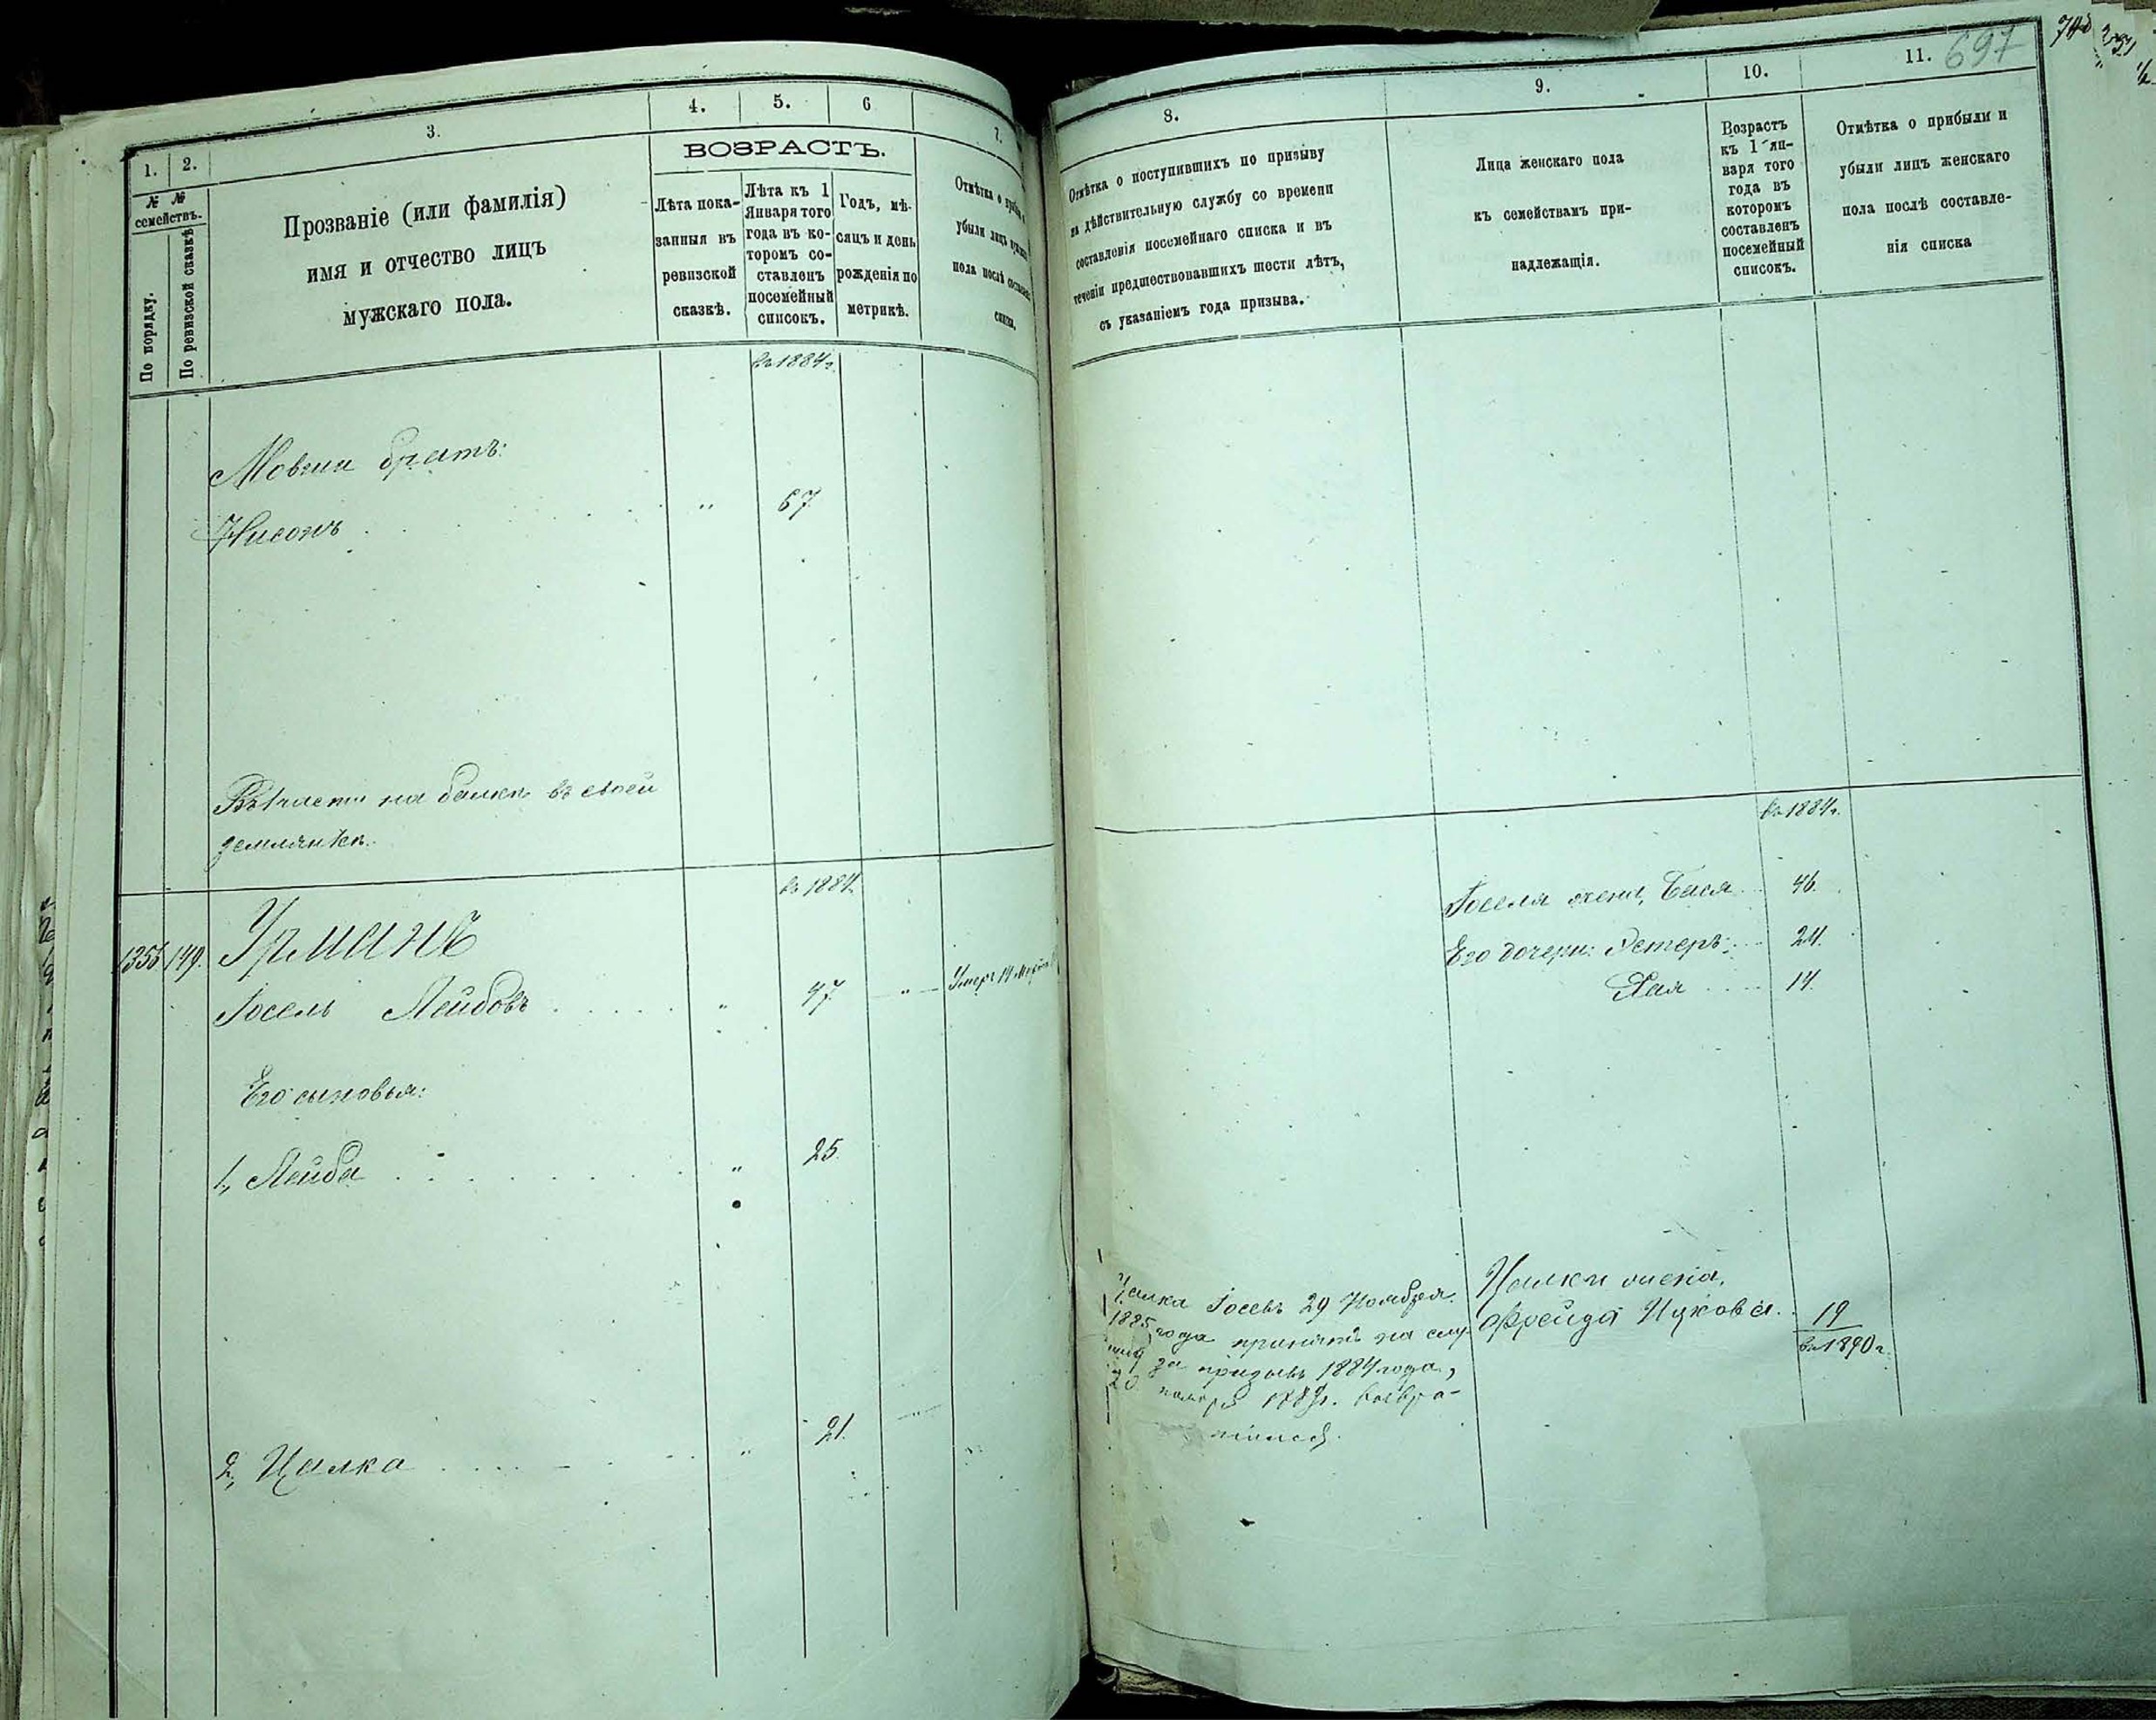 1.
2.
3.
4.
5.
6
7.
№ №
семействъ.
По порядку.
По ревизской сказкѣ
Прозваніе (или фамилія)
имя и отчество лицъ
мужскаго пола.
ВОЗРАСТЪ.
Лѣта пока-
занныя въ
ревизской
сказкѣ.
Лѣта къ 1
Января того
года въ ко-
торомъ со-
ставленъ
посемейный
списокъ.
Годъ, мѣ-
сяцъ и день
рожденія по
метрикѣ.
Отмѣтка о
убыли лицъ
пола послѣ
въ 1884 г.
Мовши братъ:
Нисонъ
"
67
на балкѣ въ своей
землянкѣ.
въ 1884.
1355
149.
Урманъ
Іосель Лейбовъ
"
47
"
Умеръ 14
Его сыновья:
1, Лейба
"
25
2, Цалка
"
21.
8.
9.
10.
11.
697
Отмѣтка о поступившихъ по призыву
на дѣйствительную службу со времени
составленія посемейнаго списка и въ
теченіи предшествовавшихъ шести лѣтъ,
съ указаніемъ года призыва.
Лица женскаго пола
къ семействамъ при-
надлежащія.
Возрастъ
къ 1 ян-
варя того
года въ
которомъ
составленъ
посемейный
списокъ.
Отмѣтка о прибыли и
убыли лицъ женскаго
пола послѣ составле-
нія списка
въ 1884 г.
Іоселя жена, Бася
46.
Его дочери: Эстеръ
24.
Хая
14.
Цалка Іосевъ 29 Ноября
1885 года принятъ на служ
за призывъ 1884 года,
20
Цалки жена,
Фрейда Ицкова.
19
въ 1890 г.